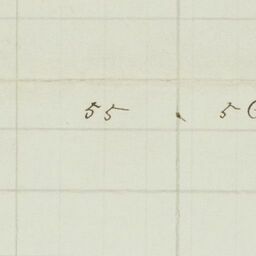 55 5